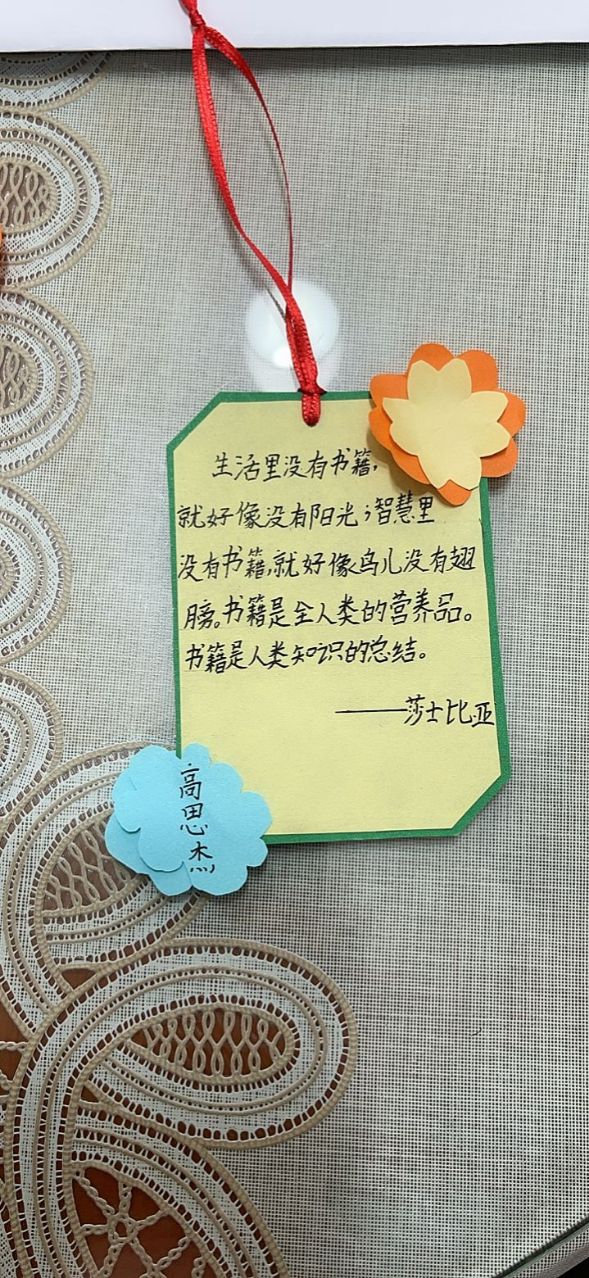 生活里没有书籍,
就好像没有阳光;智慧里
没有书籍,就好像鸟儿没有翅
膀。书籍是全人类的营养品。
书籍是人类知识的总结。
——莎士比亚
高思杰